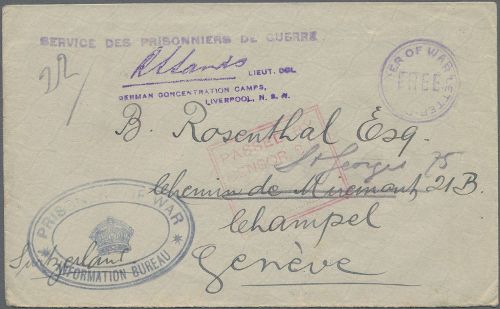 SERVICE DES PRISONNIERS DE GUERRE.
LIEUT. COL
GERMAN CONCENTRATION CAMPS,
LIVERPOOL, N. S. W.
PRISONER OF WAR LETTER
FREE
B. Rosenthal Esq.
PASSED
CENSOR
St Georges 75
Chemin de Miremont, 21B.
Champel
Genève
Switzerland
PRISONERS OF WAR
INFORMATION BUREAU